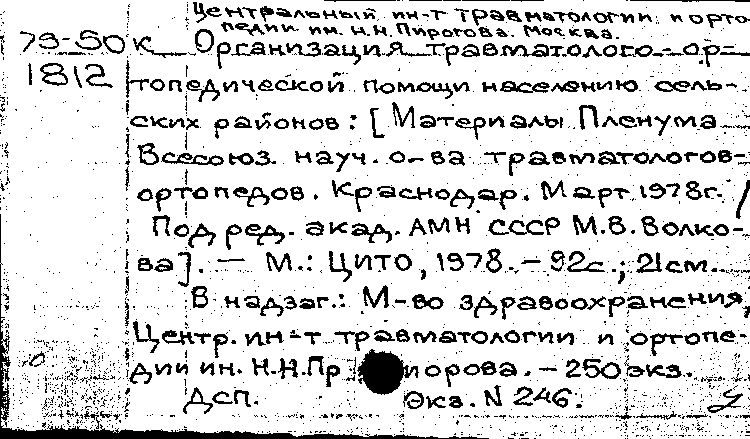 Центральный ин-т травматологии и орто
педии им. Н.Н. Пирогова. Москва.
79-50к Организация травматолого-ор-
1812 топедической помощи населению сель-
ских районов: [Материалы Пленума
Всесоюз. науч. о-ва травматологов-
ортопедов. Краснодар. Март 1978г. /
Под ред. акад. АМН СССР М.В. Волко-
ва]. — М.: ЦИТО, 1978. - 92с.; 21см.
В надзаг.: М-во здравоохранения,
Центр. ин-т травматологии и ортопе-
дии им. Н.Н. Пр иорова. - 250 экз.
Дсп. Экз. N 246.